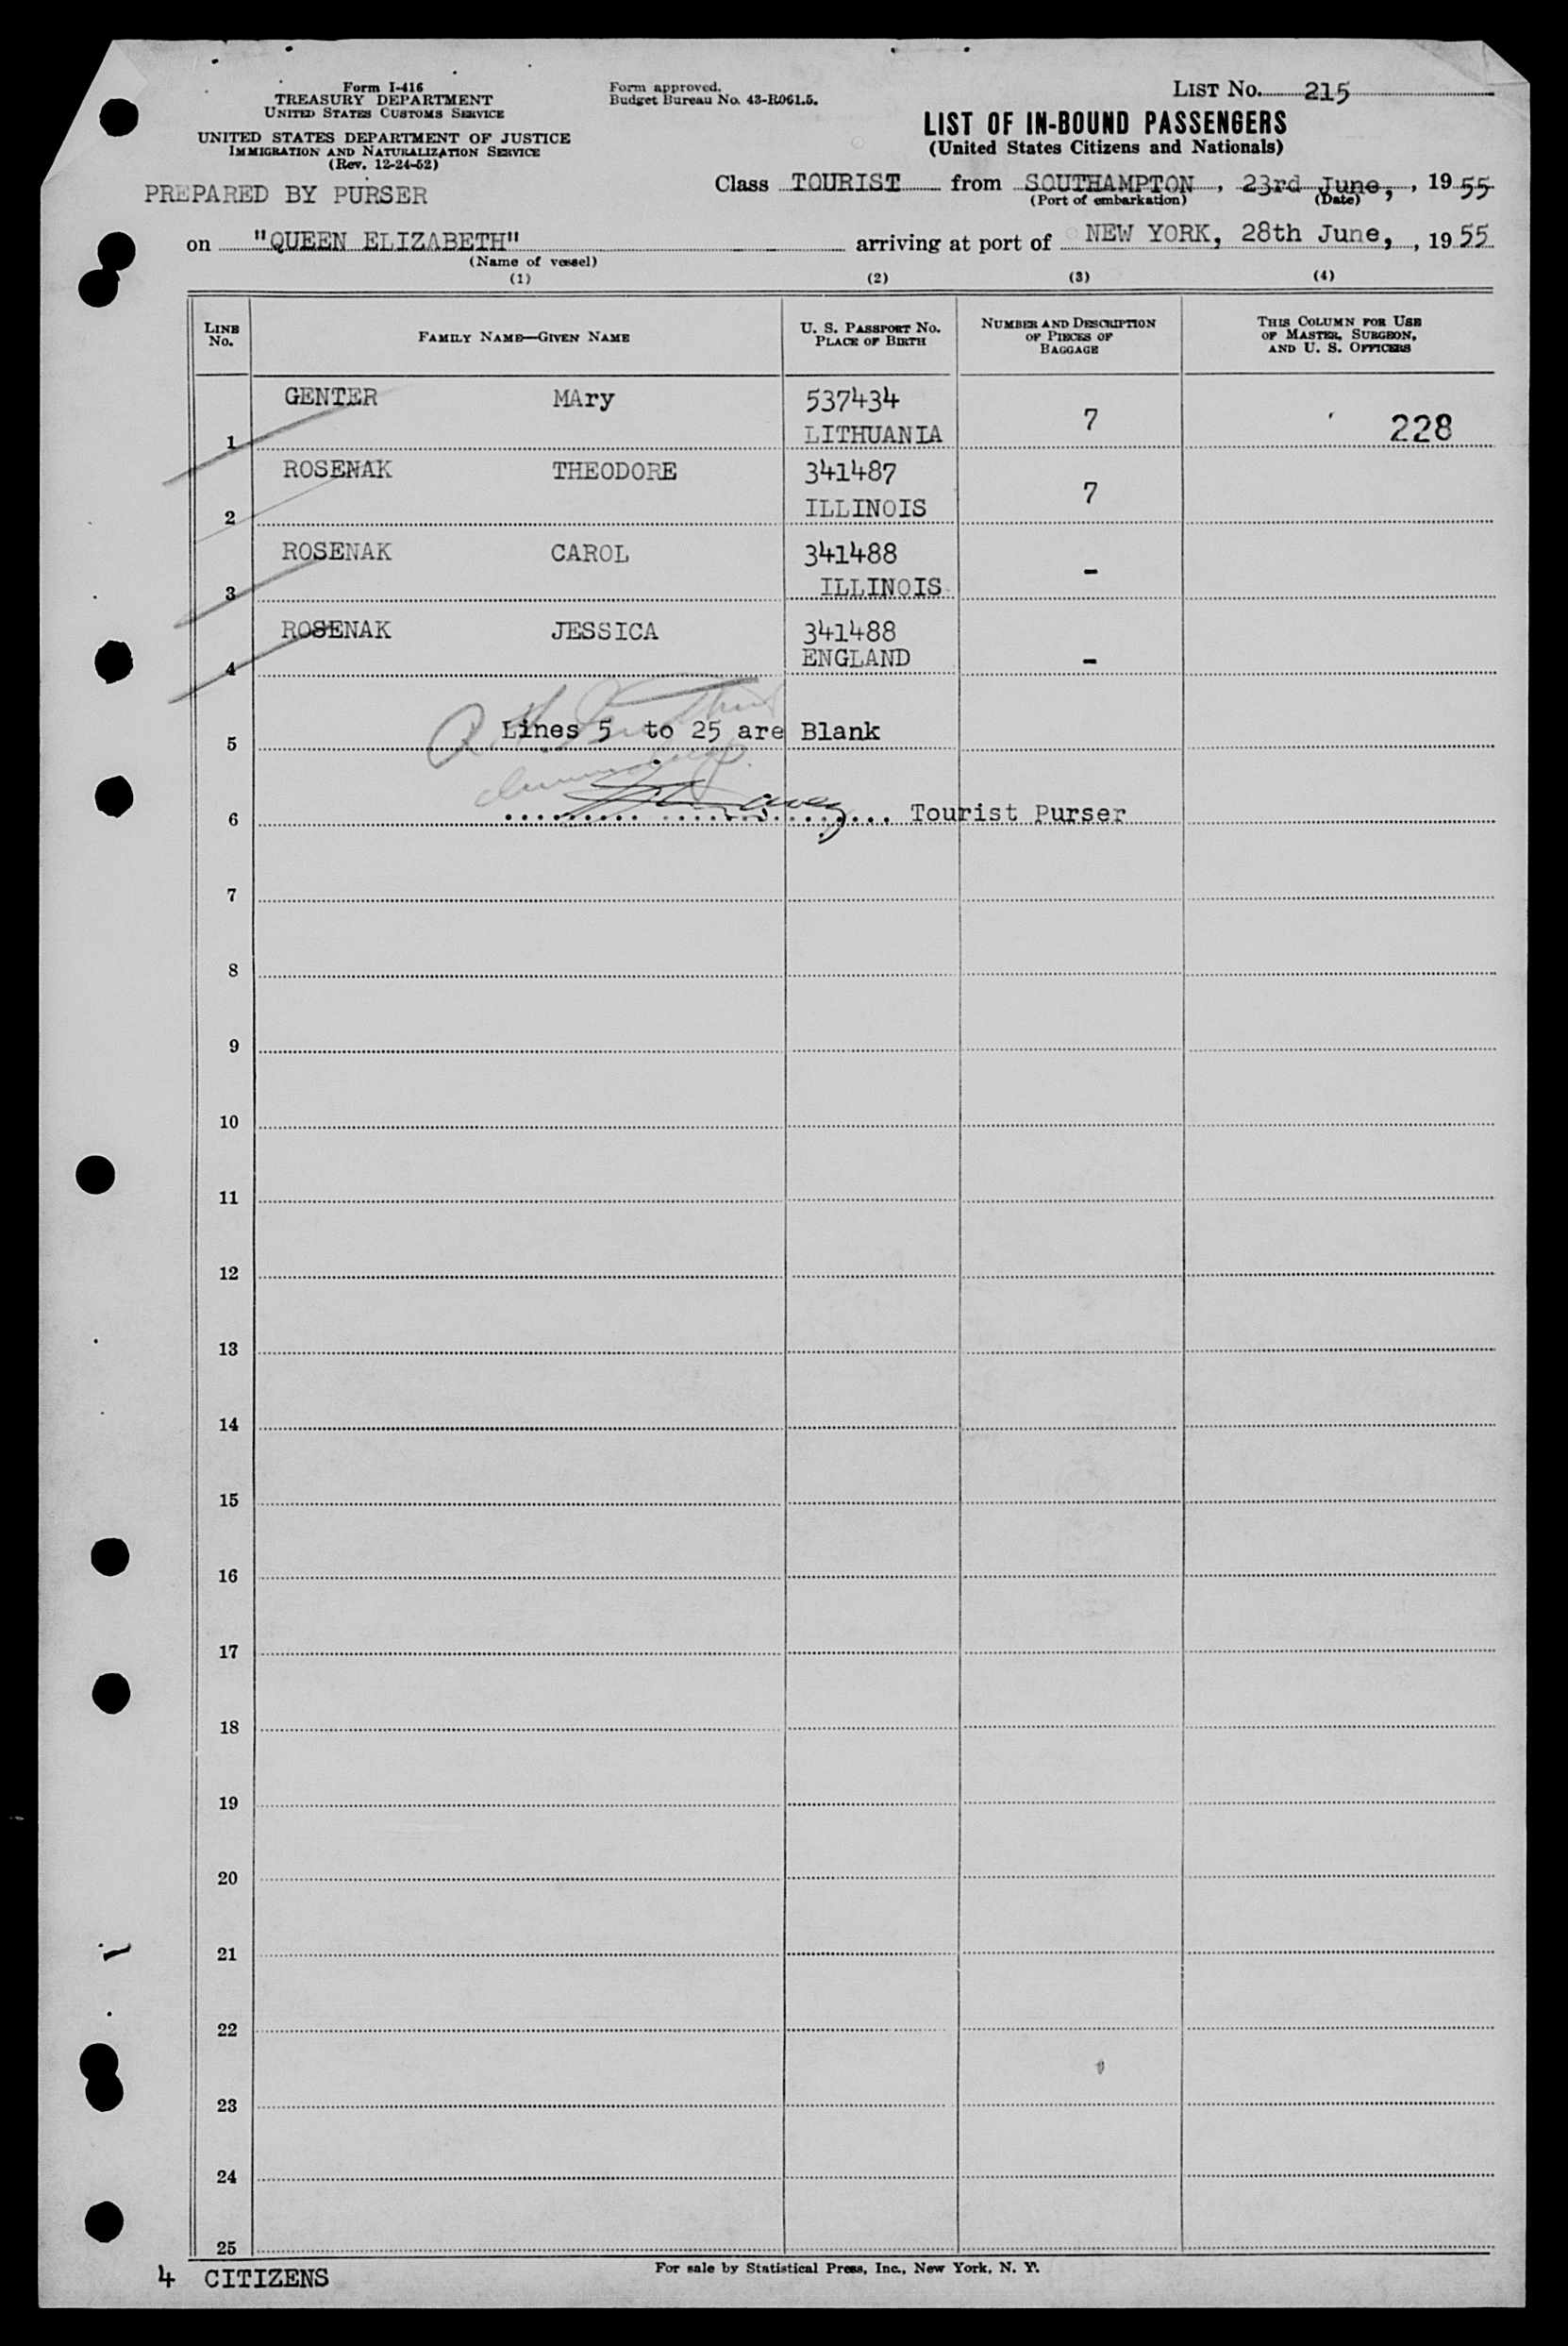 Form I-416
TREASURY DEPARTMENT
UNITED STATES CUSTOMS SERVICE
UNITED STATES DEPARTMENT OF JUSTICE
IMMIGRATION AND NATURALIZATION SERVICE
(Rev. 12-24-52)
PREPARED BY PURSER
Form approved.
Budget Bureau No. 43-R061.5.
LIST No. 215
LIST OF IN-BOUND PASSENGERS
(United States Citizens and Nationals)
Class TOURIST from SOUTHAMPTON , 23rd June, , 19 55
(Port of embarkation) (Date)
on "QUEEN ELIZABETH" arriving at port of NEW YORK, 28th June, , 19 55
(Name of vessel)
(1) (2) (3) (4)
LINE No. FAMILY NAME—GIVEN NAME U. S. PASSPORT No. PLACE OF BIRTH NUMBER AND DESCRIPTION OF PIECES OF BAGGAGE THIS COLUMN FOR USE OF MASTER, SURGEON, AND U. S. OFFICERS
GENTER MAry 537434
1 LITHUANIA 7 228
ROSENAK THEODORE 341487
2 ILLINOIS 7
ROSENAK CAROL 341488
3 ILLINOIS -
ROSENAK JESSICA 341488
4 ENGLAND -
5 Lines 5 to 25 are Blank
6 Tourist Purser
7
8
9
10
11
12
13
14
15
16
17
18
19
20
21
22
23
24
25
4 CITIZENS
For sale by Statistical Press, Inc., New York, N. Y.